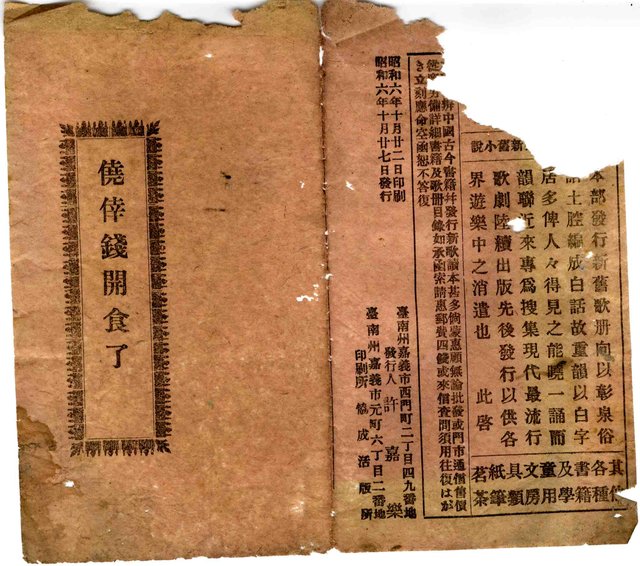 新舊小說
本部發行新舊歌册向以彰泉俗
土腔編成白話故重韻以白字
居多俾人々得見之能曉一誦而
韻聯近來專爲搜集現代最流行
歌劇陸續出版先後發行以供各
界遊樂中之消遣也　此啓
其他各種書籍及學童用文房具類紙筆茗茶
辦中國古今書籍幷發行新歌讀本甚多倘蒙惠顧無論批發或門市通信售價
從 另備詳細書籍及歌册目錄如承函索請惠郵費四錢或來信查問須用往復はが
き立刻應命空函恕不答復
昭和六年十月廿二日印刷
昭和六年十月廿七日發行
臺南州嘉義市西門町二丁目四九番地
發行人 許嘉樂
臺南州嘉義市元町六丁目二番地
印刷所 協成活版所
僥倖錢開食了